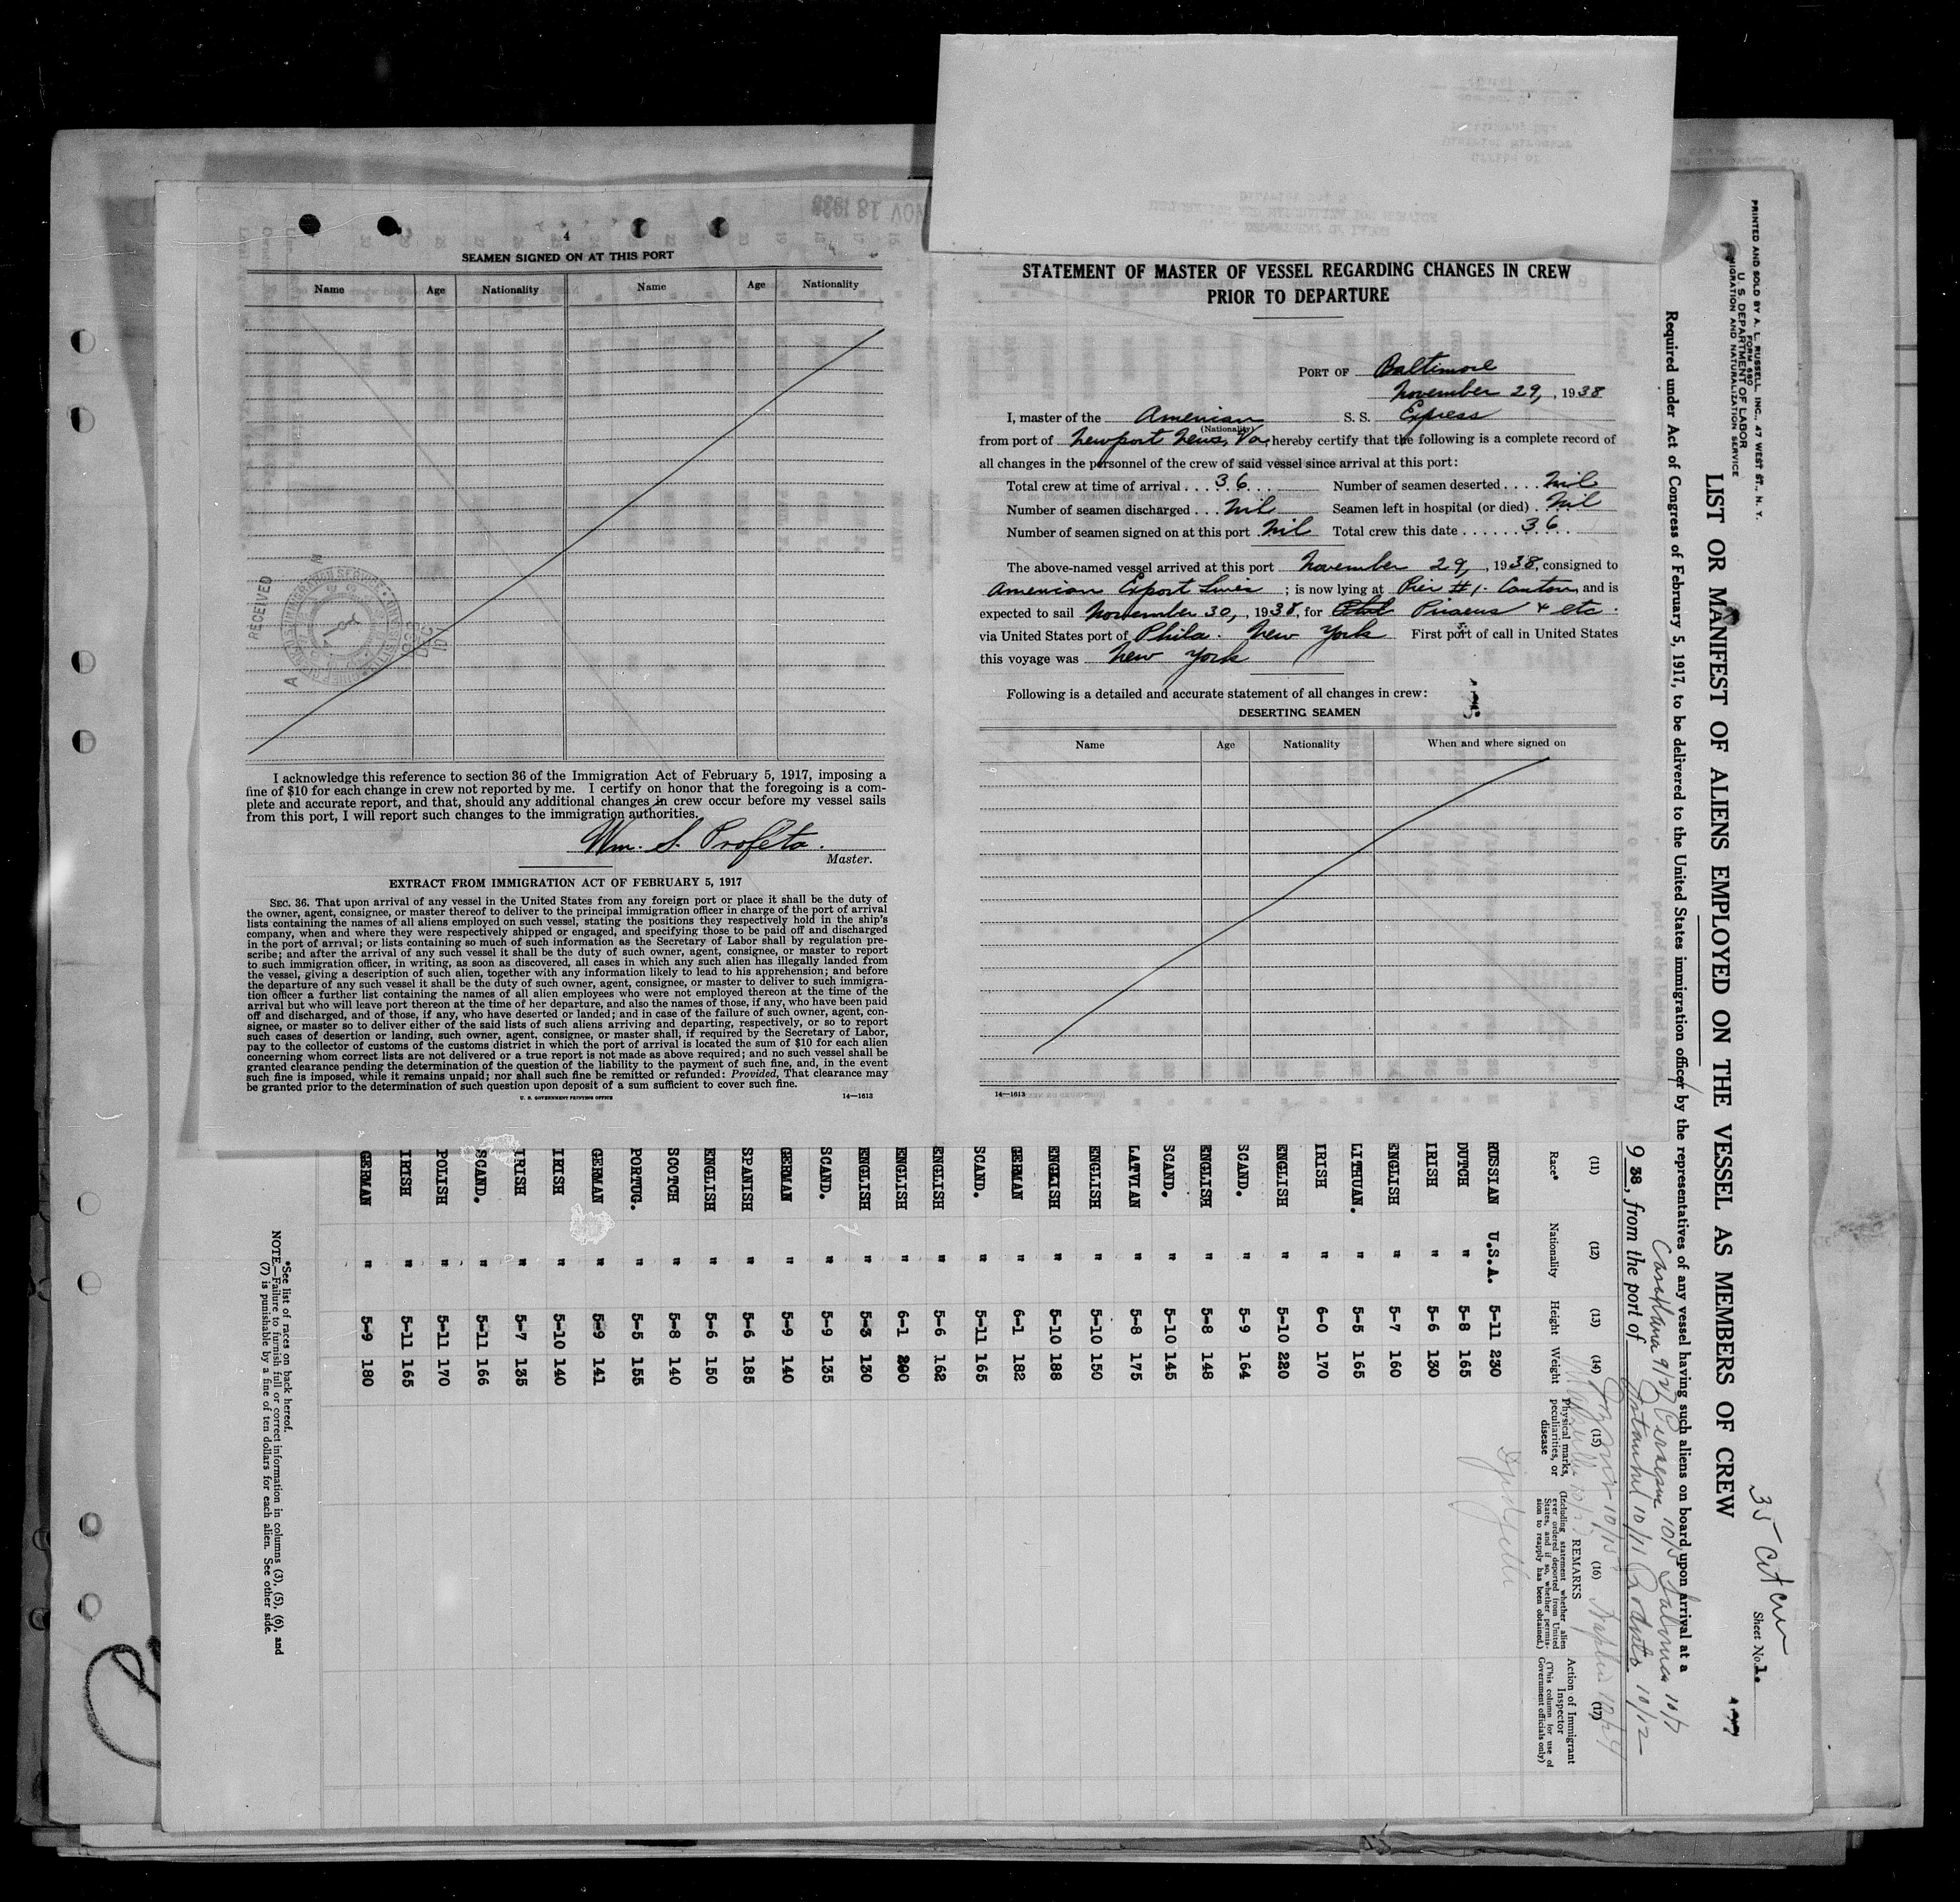 4
SEAMEN SIGNED ON AT THIS PORT
Name Age Nationality Name Age Nationality
RECEIVED
I acknowledge this reference to section 36 of the Immigration Act of February 5, 1917, imposing a
fine of $10 for each change in crew not reported by me. I certify on honor that the foregoing is a com-
plete and accurate report, and that, should any additional changes in crew occur before my vessel sails
from this port, I will report such changes to the immigration authorities.
Wm. S. Profeta.
Master.
EXTRACT FROM IMMIGRATION ACT OF FEBRUARY 5, 1917
SEC. 36. That upon arrival of any vessel in the United States from any foreign port or place it shall be the duty of
the owner, agent, consignee, or master thereof to deliver to the principal immigration officer in charge of the port of arrival
lists containing the names of all aliens employed on such vessel, stating the positions they respectively hold in the ship's
company, when and where they were respectively shipped or engaged, and specifying those to be paid off and discharged
in the port of arrival; or lists containing so much of such information as the Secretary of Labor shall by regulation pre-
scribe; and after the arrival of any such vessel it shall be the duty of such owner, agent, consignee, or master to report
to such immigration officer, in writing, as soon as discovered, all cases in which any such alien has illegally landed from
the vessel, giving a description of such alien, together with any information likely to lead to his apprehension; and before
the departure of any such vessel it shall be the duty of such owner, agent, consignee, or master to deliver to such immigra-
tion officer a further list containing the names of all alien employees who were not employed thereon at the time of the
arrival but who will leave port thereon at the time of her departure, and also the names of those, if any, who have been paid
off and discharged, and of those, if any, who have deserted or landed; and in case of the failure of such owner, agent, con-
signee, or master so to deliver either of the said lists of such aliens arriving and departing, respectively, or so to report
such cases of desertion or landing, such owner, agent, consignee, or master shall, if required by the Secretary of Labor,
pay to the collector of customs of the customs district in which the port of arrival is located the sum of $10 for each alien
concerning whom correct lists are not delivered or a true report is not made as above required; and no such vessel shall be
granted clearance pending the determination of the question of the liability to the payment of such fine, and, in the event
such fine is imposed, while it remains unpaid; nor shall such fine be remitted or refunded: Provided, That clearance may
be granted prior to the determination of such question upon deposit of a sum sufficient to cover such fine.
U. S. GOVERNMENT PRINTING OFFICE 14—1613
STATEMENT OF MASTER OF VESSEL REGARDING CHANGES IN CREW
PRIOR TO DEPARTURE
PORT OF Baltimore
November 29, , 1938
I, master of the American S. S. Express
(Nationality)
from port of Newport News, Va, hereby certify that the following is a complete record of
all changes in the personnel of the crew of said vessel since arrival at this port:
Total crew at time of arrival . . . 36 Number of seamen deserted . . . . Nil
Number of seamen discharged . . . Nil Seamen left in hospital (or died) . Nil
Number of seamen signed on at this port . Nil Total crew this date . . . . . . . 36
The above-named vessel arrived at this port November 29, , 1938, consigned to
American Export Lines ; is now lying at Pier #1. Canton, and is
expected to sail November 30, , 1938, for Piraeus & etc.
via United States port of Phila. New York First port of call in United States
this voyage was New York
Following is a detailed and accurate statement of all changes in crew:
DESERTING SEAMEN
Name Age Nationality When and where signed on
14—1613
PRINTED AND SOLD BY A. L. RUSSELL, INC., 47 WEST ST., N. Y.
FORM 680
U. S. DEPARTMENT OF LABOR
IMMIGRATION AND NATURALIZATION SERVICE
35 citizen
Sheet No. 1.
LIST OR MANIFEST OF ALIENS EMPLOYED ON THE VESSEL AS MEMBERS OF CREW
Required under Act of Congress of February 5, 1917, to be delivered to the United States immigration officer by the representatives of any vessel having such aliens on board upon arrival at a
9 38, from the port of Istanbul 10/11 Rodosto 10/12
(11) (12) (13) (14) (15) (16) (17)
Race* Nationality Height Weight Physical marks, peculiarities, or disease REMARKS (Including statement whether alien ever ordered deported from United States, and if so, whether permission to reapply has been obtained.) Action of Immigrant Inspector (This column for use of Government officials only)
RUSSIAN U.S.A. 5-11 230
DUTCH " 5-8 165
IRISH " 5-6 130
ENGLISH " 5-7 160
LITHUAN. " 5-5 165
IRISH " 6-0 170
ENGLISH " 5-10 220
SCAND. " 5-9 164
ENGLISH " 5-8 148
SCAND. " 5-10 145
LATVIAN " 5-8 175
ENGLISH " 5-10 150
ENGLISH " 5-10 188
GERMAN " 6-1 182
SCAND. " 5-11 165
ENGLISH " 5-6 162
ENGLISH " 6-1 200
ENGLISH " 5-3 130
SCAND. " 5-9 135
GERMAN " 5-9 140
SPANISH " 5-6 185
ENGLISH " 5-6 150
SCOTCH " 5-8 140
PORTUG. " 5-5 155
GERMAN " 5-9 141
IRISH " 5-10 140
IRISH " 5-7 135
SCAND. " 5-11 166
POLISH " 5-11 170
IRISH " 5-11 165
GERMAN " 5-9 180
*See list of races on back hereof.
NOTE.—Failure to furnish full or correct information in columns (3), (5), (6), and
(7) is punishable by a fine of ten dollars for each alien. See other side.